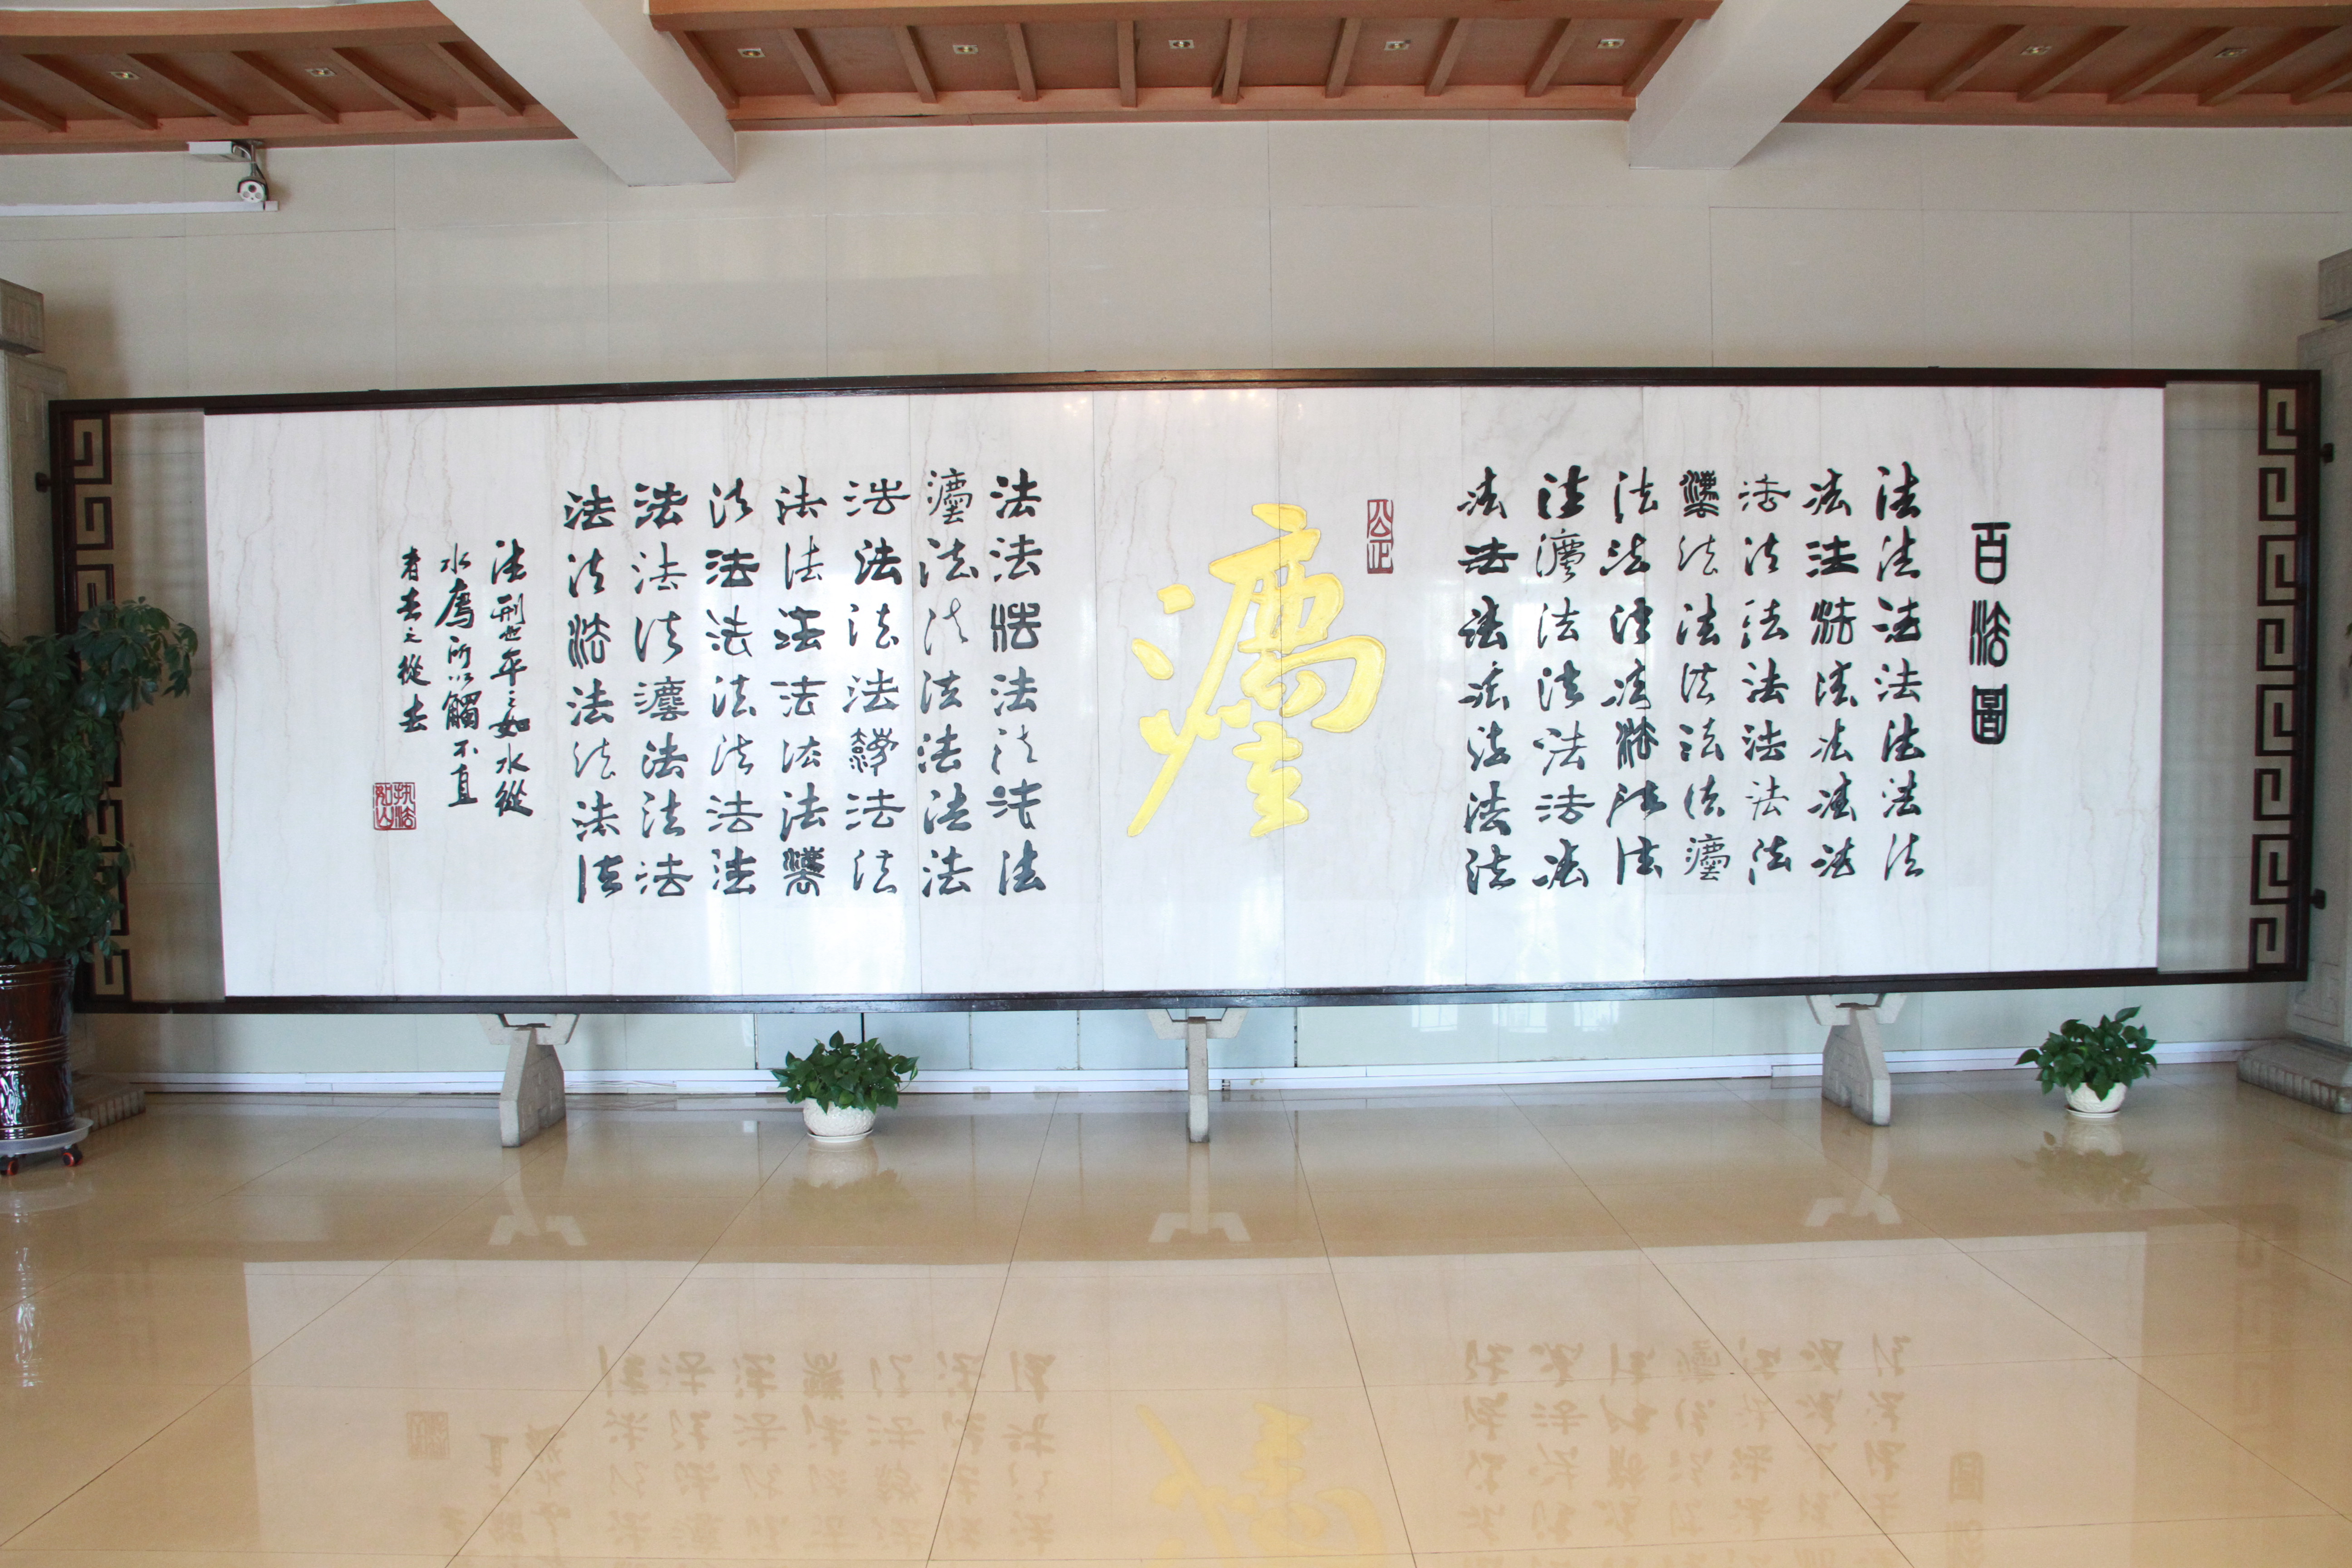 百法圖
法法法法法法法
法法法法法法法
法法法法法法法
灋法法法法法灋
法法法法法法法
法灋法法法法法
法法法法法法法
公正
灋
法法法法法法法
灋法法法法法法
法法法法灋法法
法法法法法法灋
法法法法法法法
法法法灋法法法
法法法法法法法
法刑也平之如水從
水廌所以觸不直
者去之從去
执法如山